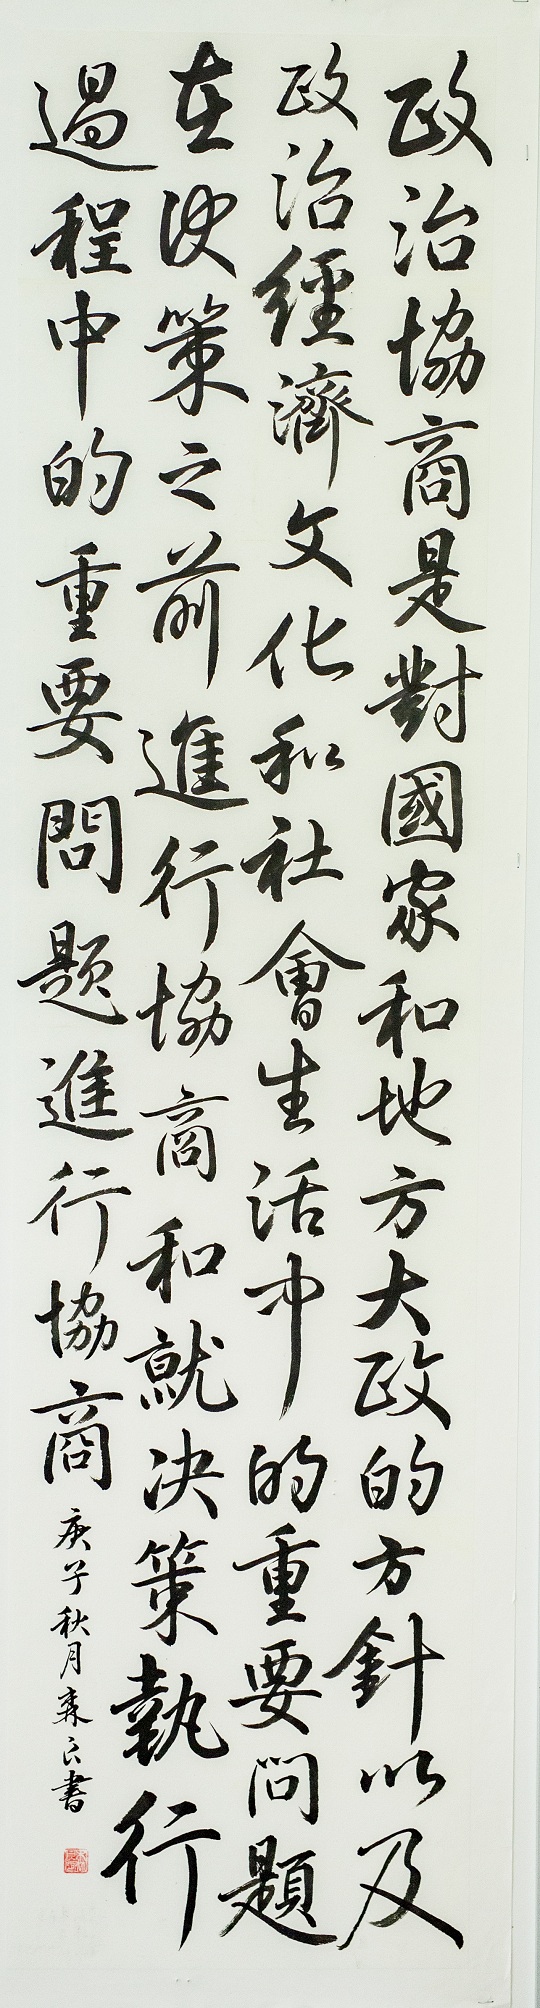 政治協商是對國家和地方大政的方針以及
政治經濟文化和社會生活中的重要問題
在決策之前進行協商和就决策執行
過程中的重要問題進行協商
庚子秋月森良書